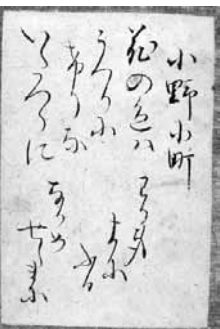 小野小町
花の色ハ
うつりに
けりな
いたつらに
わか身
よに
ふる
なかめ
せしまに